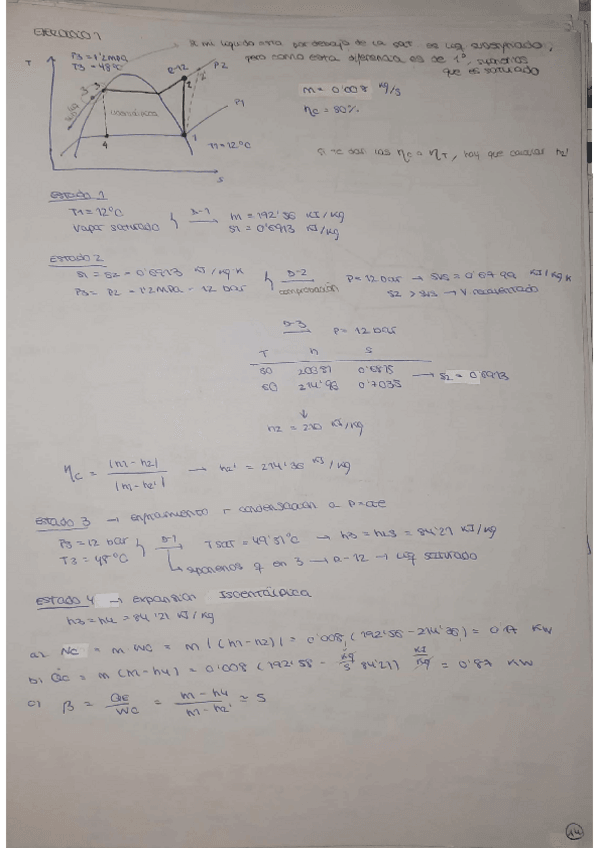 EJERCICIO 1
P3 = 1'2 MPa
T3 = 48°C
Si mi líquido está por debajo de la sat es líq subenfriado,
pero como esta diferencia es de 1°, suponemos
que es saturado
T
P2
P1
3
2
1
4
T1 = 12°C
s
m = 0'008 kg/s
ηc = 80%
Si te dan las ηc o ηT, hay que calcular h2'
Estado 1
T1 = 12°C
Vapor saturado
h1 = 192'56 KJ/kg
s1 = 0'6913 KJ/kg
Estado 2
s1 = s2 = 0'6913 KJ/kg·K
P3 = P2 = 1'2 MPa = 12 bar
D-2
comprobación
P = 12 bar → sv2 = 0'6799 KJ/kg·K
s2 > sv3 → V. recalentado
D-3
P = 12 bar
T h s
50 0'6815
60 214'93 0'7035
→ s2 = 0'6913
h2 = 210 KJ/kg
ηc = |h1-h2| / |h1-h2'| → h2' = 214'36 KJ/kg
Estado 3 → enfriamiento y condensación a P=cte
P3 = 12 bar
T3 = 48°C
Tsat = 49'31°C → h3 = hL3 = 84'21 KJ/kg
suponemos q en 3 → a-12 → líq saturado
Estado 4 → expansión isoentálpica
h3 = h4 = 84'21 KJ/kg
a) Nc = m · Wc = m |(h1-h2)| = 0'008 (192'56 - 214'36) = 0'17 KW
b) Qc = m (h1-h4) = 0'008 (192'56 - 84'21) = 0'87 KW
kg/s
KJ/kg
c) β = / Wc = h1-h4 / h1-h2' ≈ 5
14